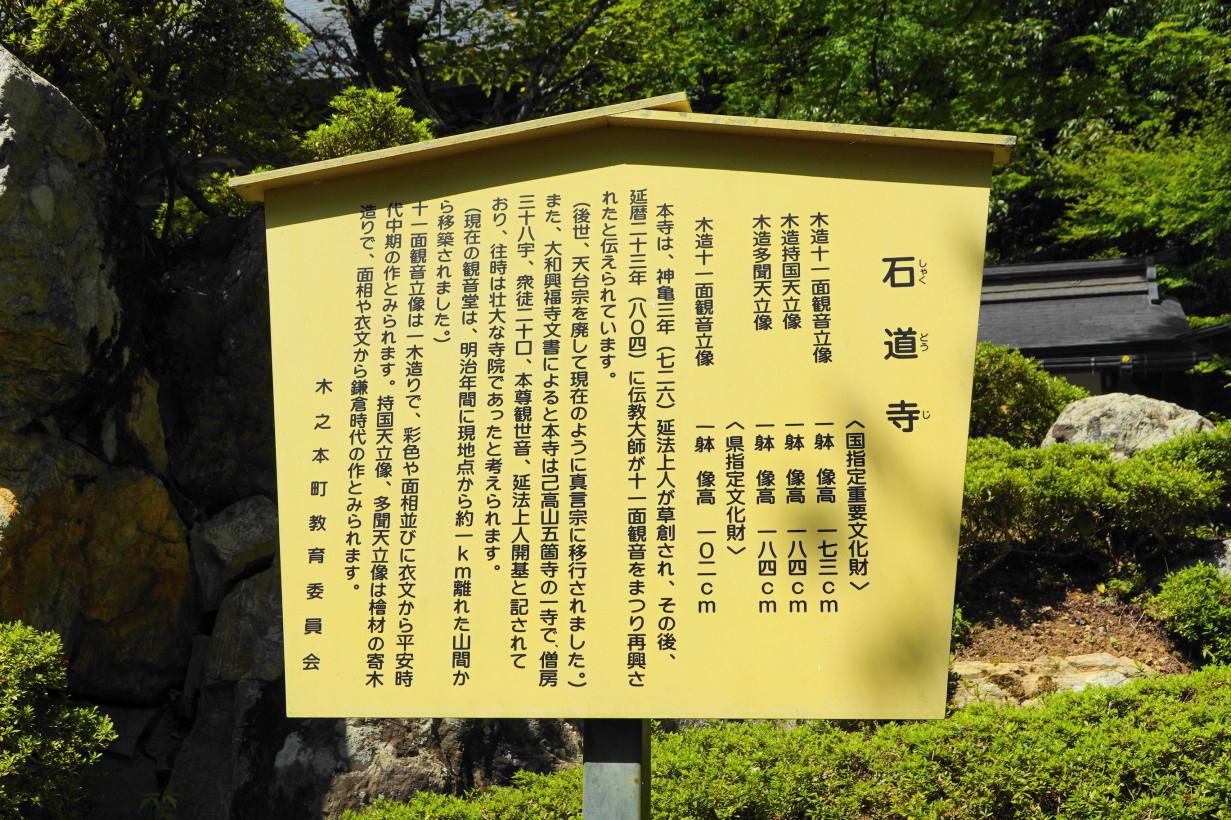 石道寺
しゃくどうじ
〈国指定重要文化財〉
木造十一面観音立像 一躰 像高 一七三cm
木造持国天立像 一躰 像高 一八四cm
木造多聞天立像 一躰 像高 一八四cm
〈県指定文化財〉
木造十一面観音立像 一躰 像高 一〇二cm
本寺は、神亀三年(七二六)延法上人が草創され、その後、
延暦二十三年(八〇四)に伝教大師が十一面観音をまつり再興さ
れたと伝えられています。
(後世、天台宗を廃して現在のように真言宗に移行されました。)
また、大和興福寺文書によると本寺は己高山五箇寺の一寺で、僧房
三十八宇、衆徒二十口、本尊観世音、延法上人開基と記されて
おり、往時は壮大な寺院であったと考えられます。
(現在の観音堂は、明治年間に現地点から約一km離れた山間か
ら移築されました。)
十一面観音立像は一木造りで、彩色や面相並びに衣文から平安時
代中期の作とみられます。持国天立像、多聞天立像は檜材の寄木
造りで、面相や衣文から鎌倉時代の作とみられます。
木之本町教育委員会